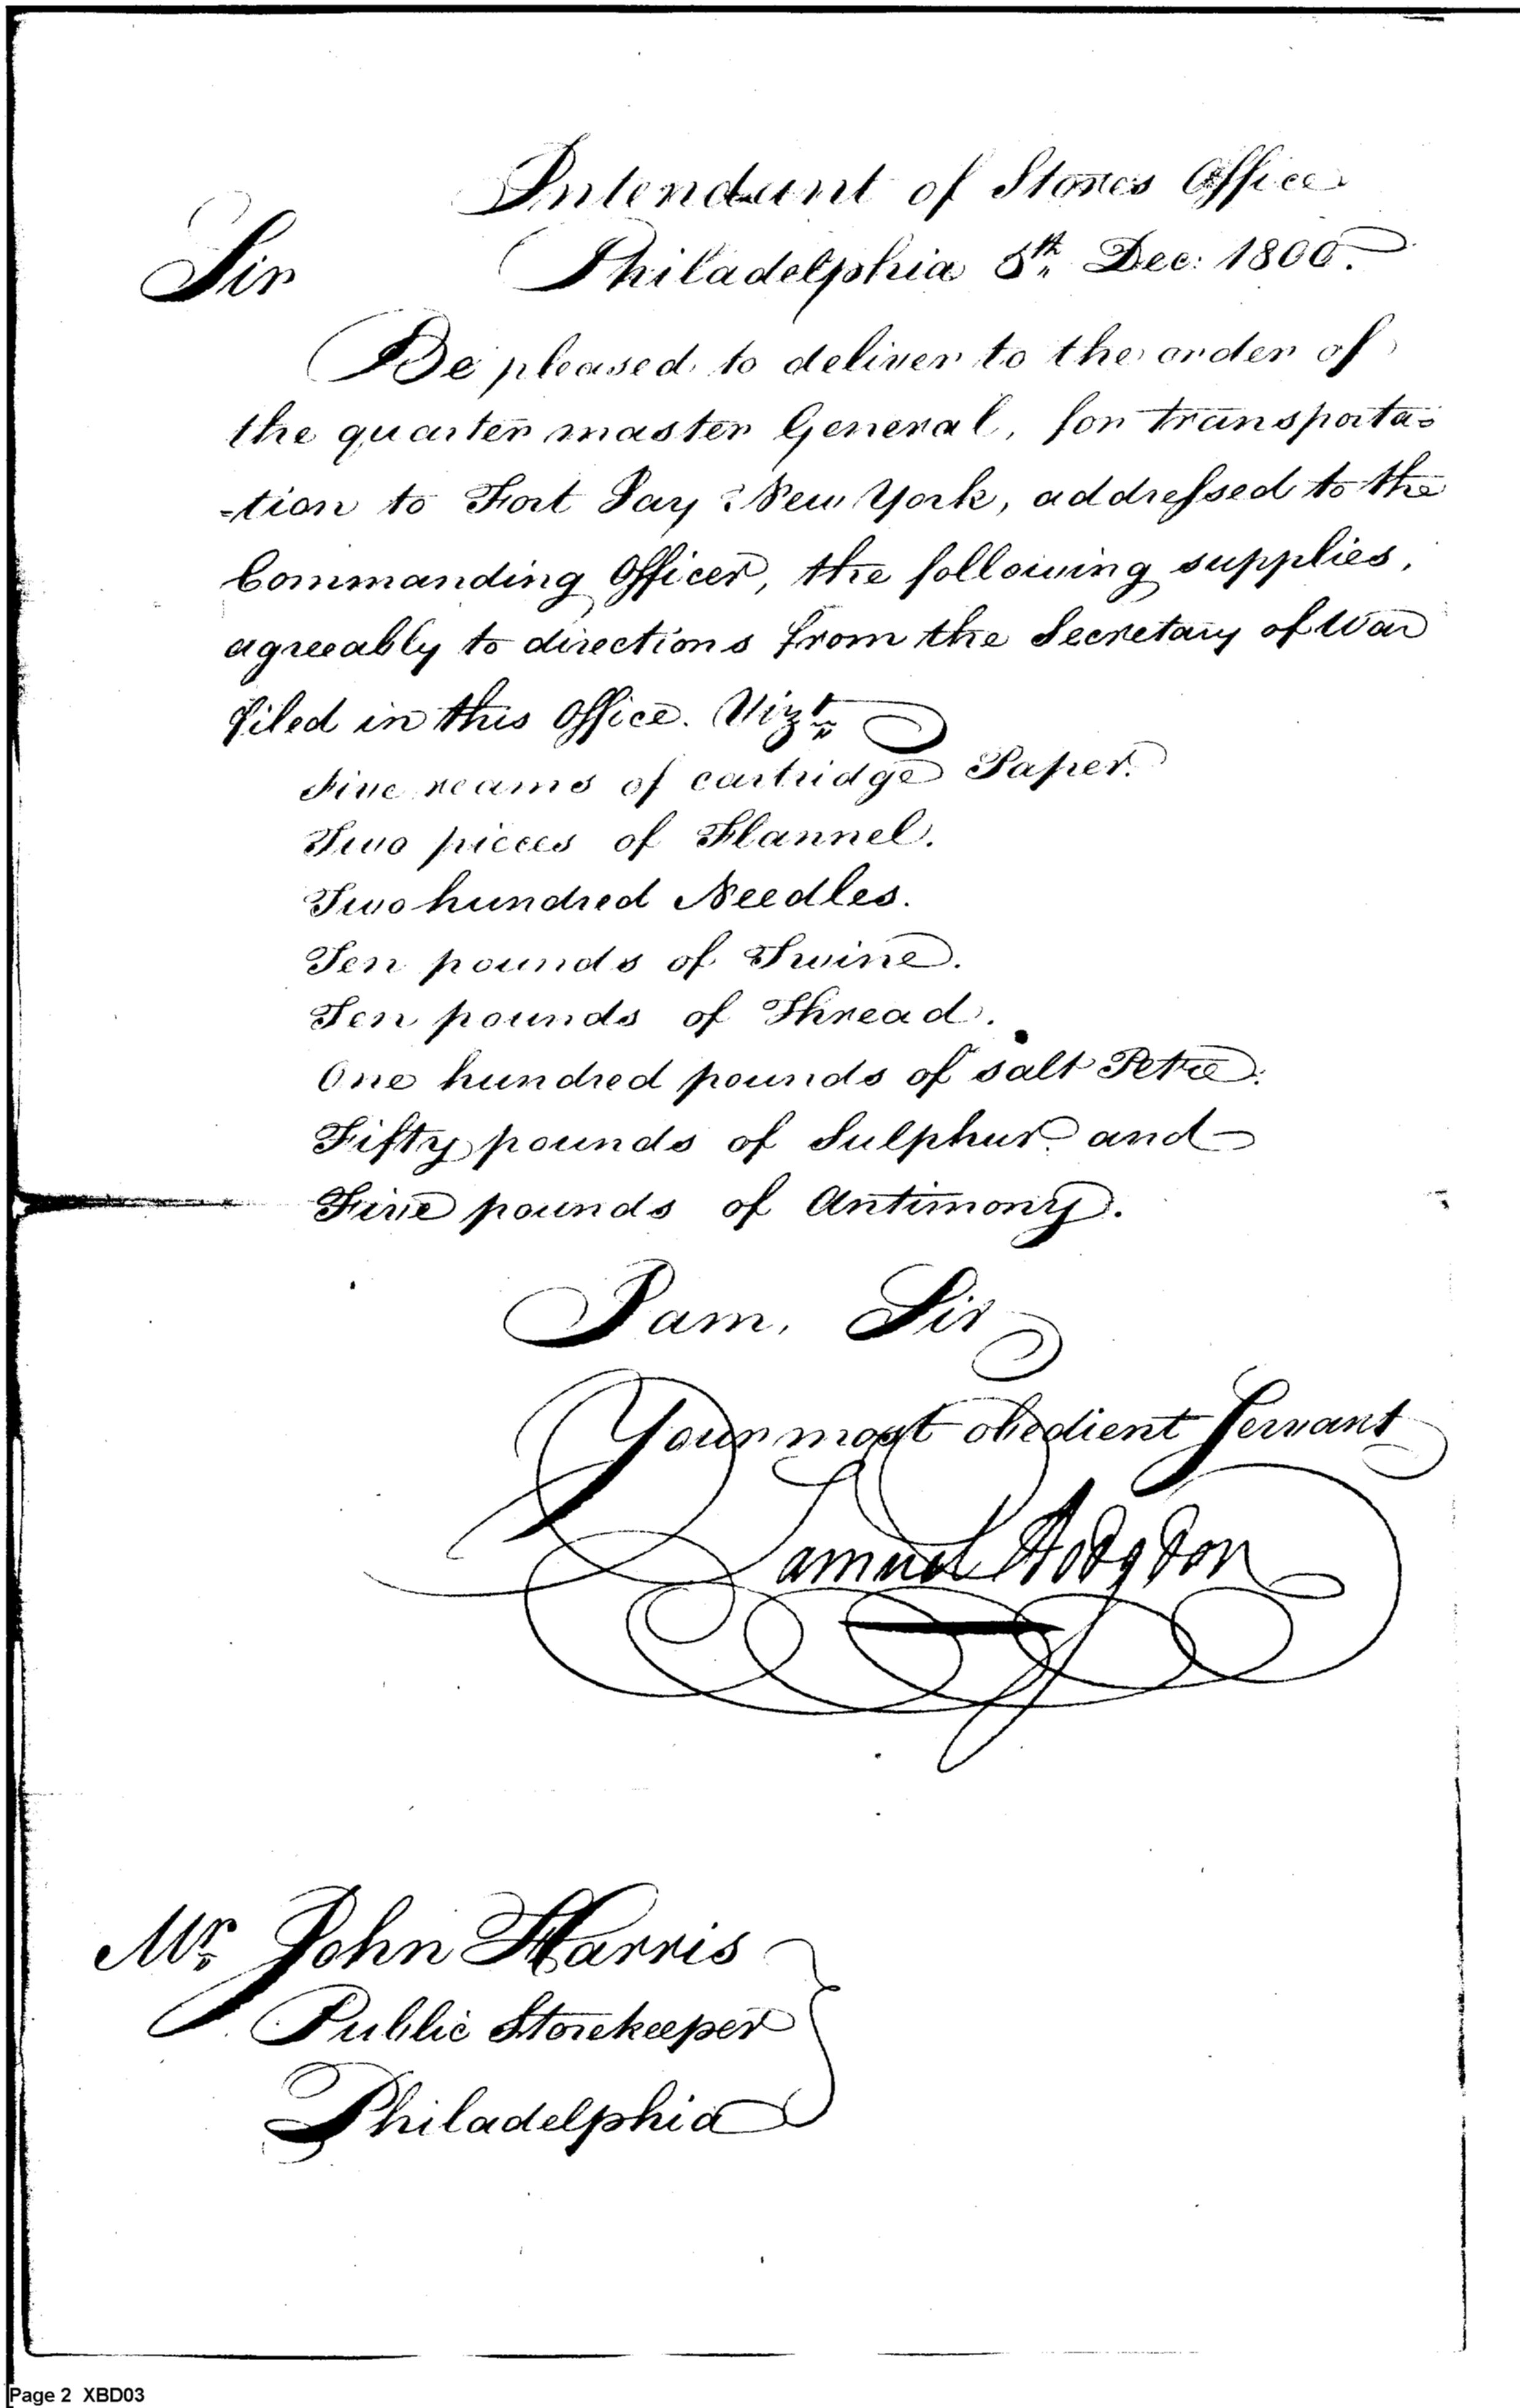 Intendant of Stores Office
Sir Philadelphia 5th Dec: 1800.
Be pleased to deliver to the order of
the quarter master General, for transporta=
=tion to Fort Jay New York, addressed to the
Commanding Officer, the following supplies,
agreeably to directions from the Secretary of War
filed in this Office. Vizt
Five reams of cartridge Paper.
Two pieces of Flannel.
Two hundred Needles.
Ten pounds of Twine.
Ten pounds of Thread.
One hundred pounds of salt Petre.
Fifty pounds of Sulphur and
Five pounds of Antimony.
I am, Sir
Your most obedient Servant
Samuel Hodgdon
Mr. John Harris
Public Storekeeper
Philadelphia
Page 2 XBD03